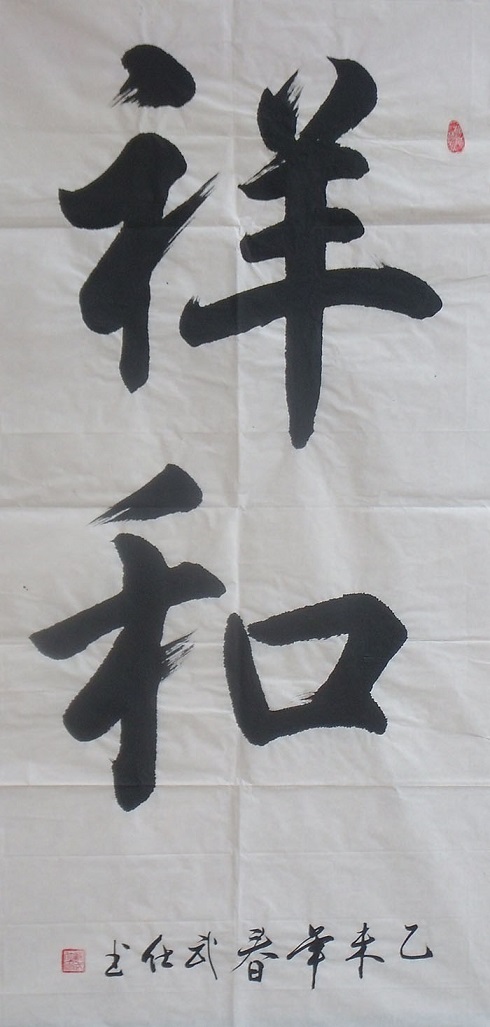 祥和
乙未年春武仕书